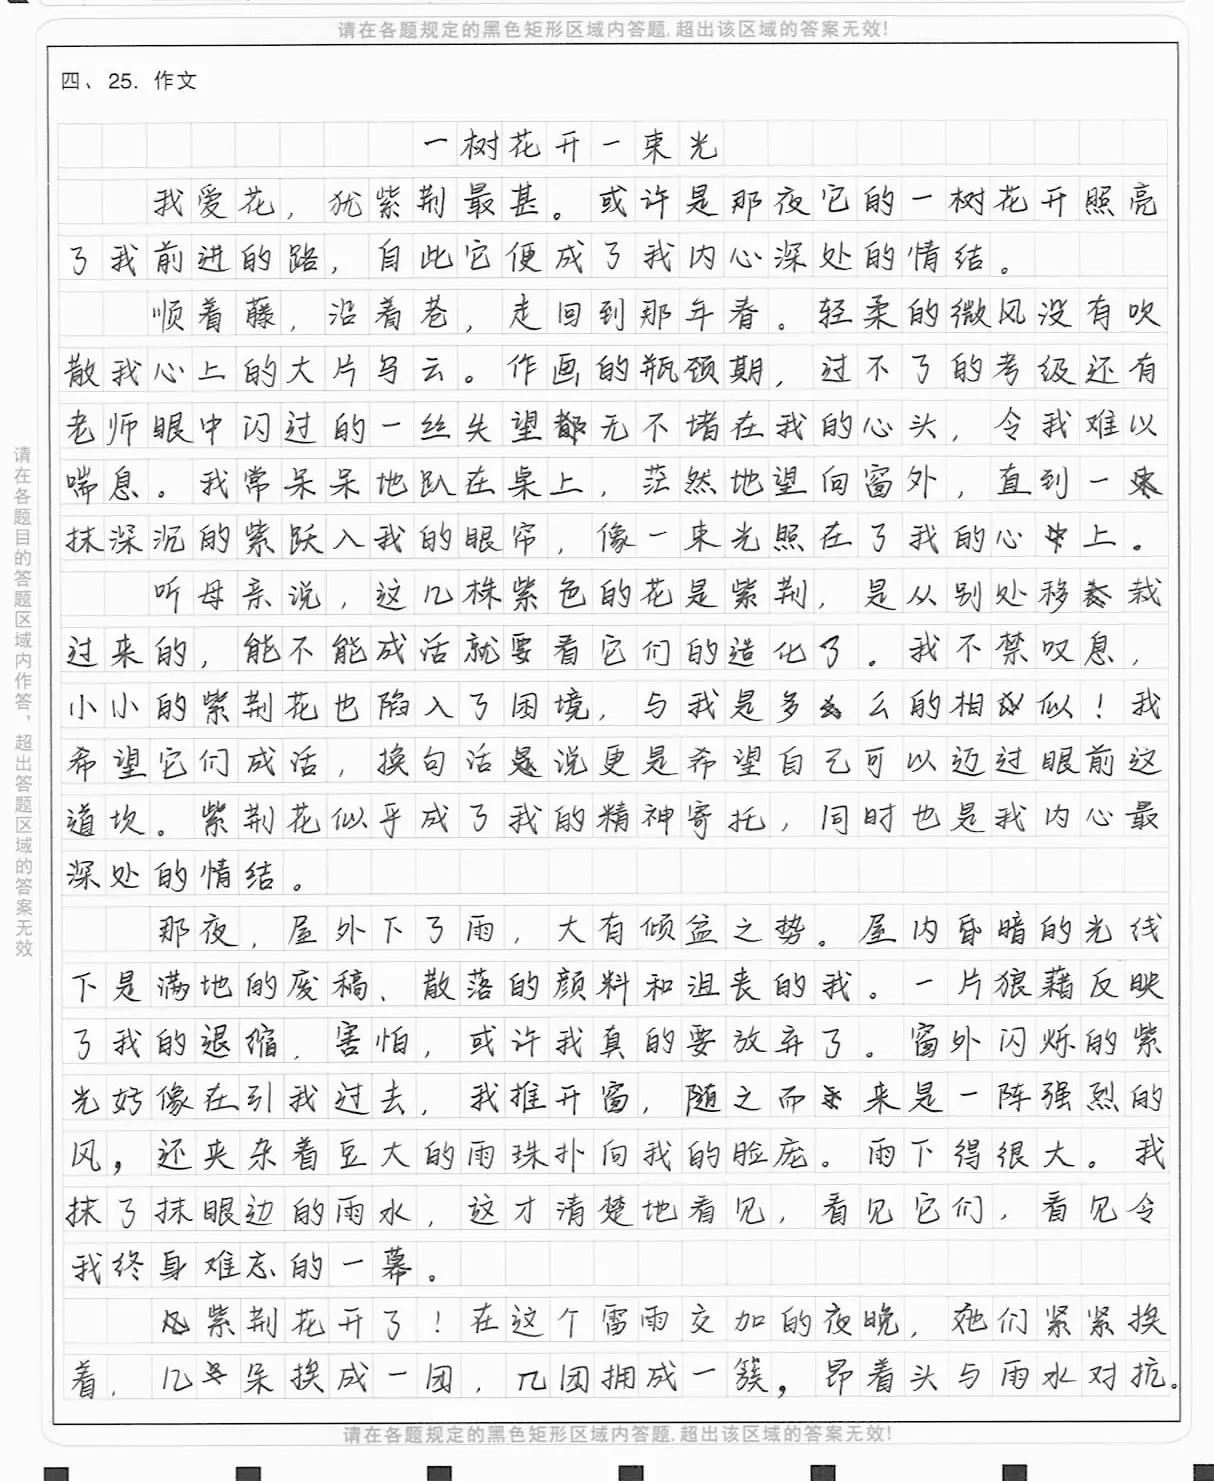 请在各题规定的黑色矩形区域内答题,超出该区域的答案无效!
四、25. 作文
一树花开一束光
我爱花，犹紫荆最甚。或许是那夜它的一树花开照亮
了我前进的路，自此它便成了我内心深处的情结。
顺着藤，沿着巷，走回到那年春。轻柔的微风没有吹
散我心上的大片乌云。作画的瓶颈期，过不了的考级还有
老师眼中闪过的一丝失望都无不堵在我的心头，令我难以
喘息。我常呆呆地趴在桌上，茫然地望向窗外，直到一
抹深沉的紫跃入我的眼帘，像一束光照在了我的心上。
听母亲说，这几株紫色的花是紫荆，是从别处移栽
过来的，能不能成活就要看它们的造化了。我不禁叹息，
小小的紫荆花也陷入了困境，与我是多么的相似！我
希望它们成活，换句话说更是希望自己可以迈过眼前这
道坎。紫荆花似乎成了我的精神寄托，同时也是我内心最
深处的情结。
那夜，屋外下了雨，大有倾盆之势。屋内昏暗的光线
下是满地的废稿、散落的颜料和沮丧的我。一片狼藉反映
了我的退缩，害怕，或许我真的要放弃了。窗外闪烁的紫
光好像在引我过去，我推开窗，随之而来是一阵强烈的
风，还夹杂着豆大的雨珠扑向我的脸庞。雨下得很大。我
抹了抹眼边的雨水，这才清楚地看见，看见它们，看见令
我终身难忘的一幕。
紫荆花开了！在这个雷雨交加的夜晚，她们紧紧挨
着，几朵挨成一团，几团拥成一簇，昂着头与雨水对抗。
请在各题规定的黑色矩形区域内答题,超出该区域的答案无效!
请在各题目的答题区域内作答，超出答题区域的答案无效